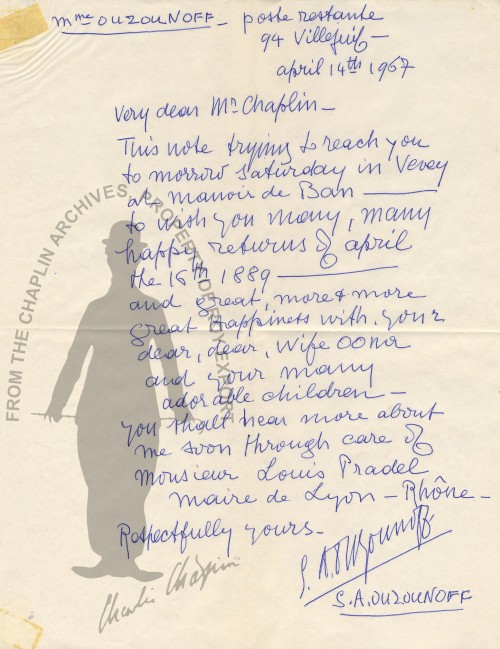 Mme OUZOUNOFF - poste restante
94 Villejuif -
april 14th 1967
Very dear Mr Chaplin -
This note trying to reach you
to morrow saturday in Vevey
at manoir de Ban
to wish you many, many
happy returns of april
the 16th 1889
and great, more & more
great happiness with your
dear, dear, Wife OOna
and your many
adorable children -
you shall hear more about
me soon through care of
Monsieur Louis Pradel
Maire de Lyon - Rhône -
Respectfully yours -
S. A. Ouzounoff
S.A. OUZOUNOFF
FROM THE CHAPLIN ARCHIVES, PROPERTY OF ROY EXPORT
Charlie Chaplin